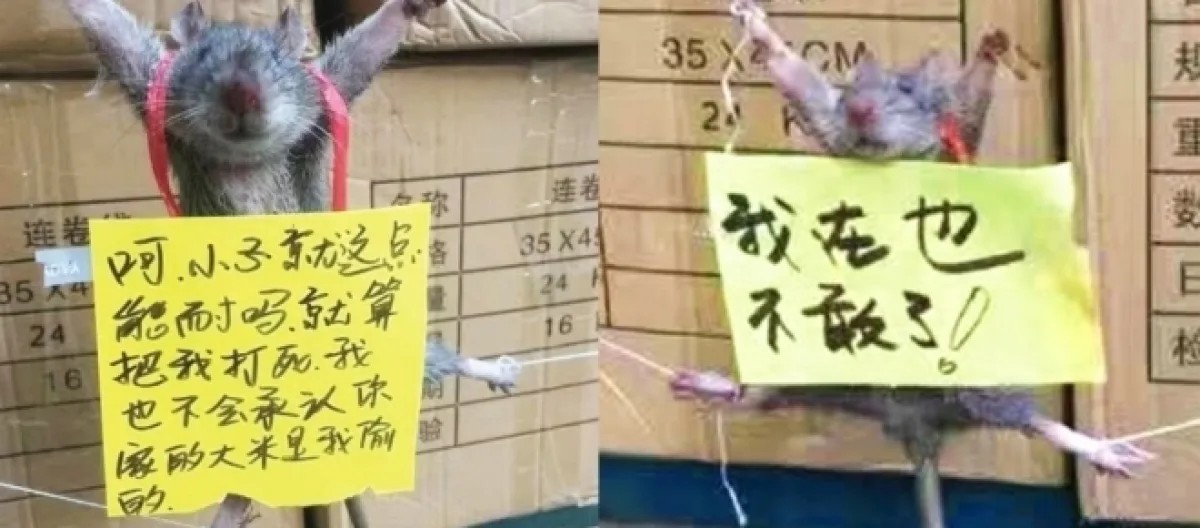 呵.小子就这点
能耐吗.就算
把我打死.我
也不会承认你
家的大米是我偷
的.
连卷
35X4
24
16
名称
连卷
格
35X45
量
24 K
16
期
验
我在也
不敢了！
35 X 4 CM
24 K
规
重
数
日
检